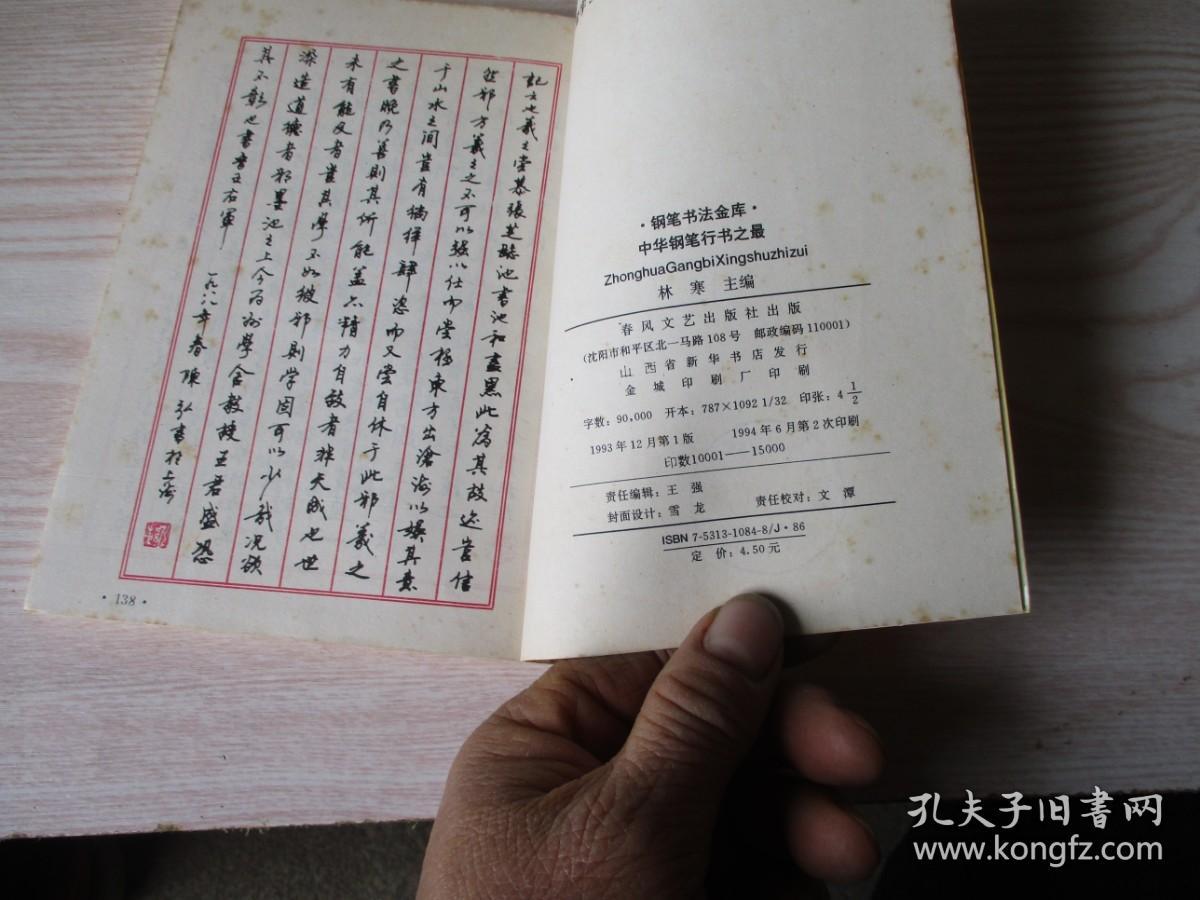 记云也羲之尝慕张芝临池书池水尽黑此为其故迹岂信
然邪方羲之之不可以强以仕而尝极东方出沧海以娱其意
于山水之间岂有徜徉肆恣而又尝自休于此邪羲之
之书晚乃善则其所能盖亦精力自致者非天成也世
未有能及者岂其学不如彼邪则学固可以少哉况欲
深造道德者邪墨池之上今为州学舍教授王君盛恐
其不彰也书晋王右军
一九八八年春 陈弘书于上海
·138·
·钢笔书法金库·
中华钢笔行书之最
ZhonghuaGangbiXingshuzhizui
林寒 主编
春风文艺出版社出版
(沈阳市和平区北一马路108号 邮政编码110001)
山西省新华书店发行
金城印刷厂印刷
字数:90,000 开本:787×1092 1/32 印张:4 1/2
1993年12月第1版 1994年6月第2次印刷
印数10001——15000
责任编辑:王强 责任校对:文潭
封面设计:雪龙
ISBN 7-5313-1084-8/J·86
定价:4.50元
孔夫子旧书网
www.kongfz.com